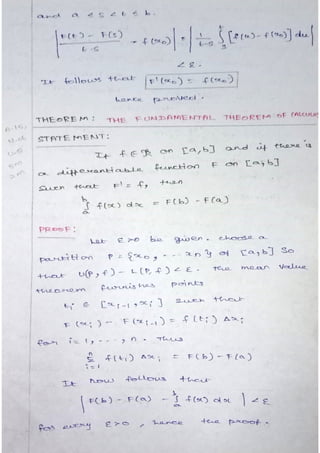 and a ≤ s < t ≤ b.
| F(t) - F(s) / t-s - f(x₀) | = | 1/t-s ∫ₛᵗ [f(u) - f(x₀)] du |
< ε.
It follows that F'(x₀) = f(x₀)
hence proved.
THEOREM: THE FUNDAMENTAL THEOREM OF CALCULUS
STATEMENT:
If f ∈ R on [a,b] and if there is
a differentiable function F on [a,b]
Such that F' = f, then
∫ₐᵇ f(x) dx = F(b) - F(a)
PROOF:
Let ε>0 be given. choose a
partition P = {x₀, ... xₙ} of [a,b] So
that U(P,f) - L(P,f) < ε. The mean value
theorem furnishes points
tᵢ ∈ [xᵢ₋₁, xᵢ] such that
F(xᵢ) - F(xᵢ₋₁) = f(tᵢ) Δxᵢ
for i = 1, ..., n. Thus
∑ᵢ₌₁ⁿ f(tᵢ) Δxᵢ = F(b) - F(a)
It now follows that
| F(b) - F(a) - ∫ₐᵇ f(x) dx | < ε
for every ε>0, hence the proof.